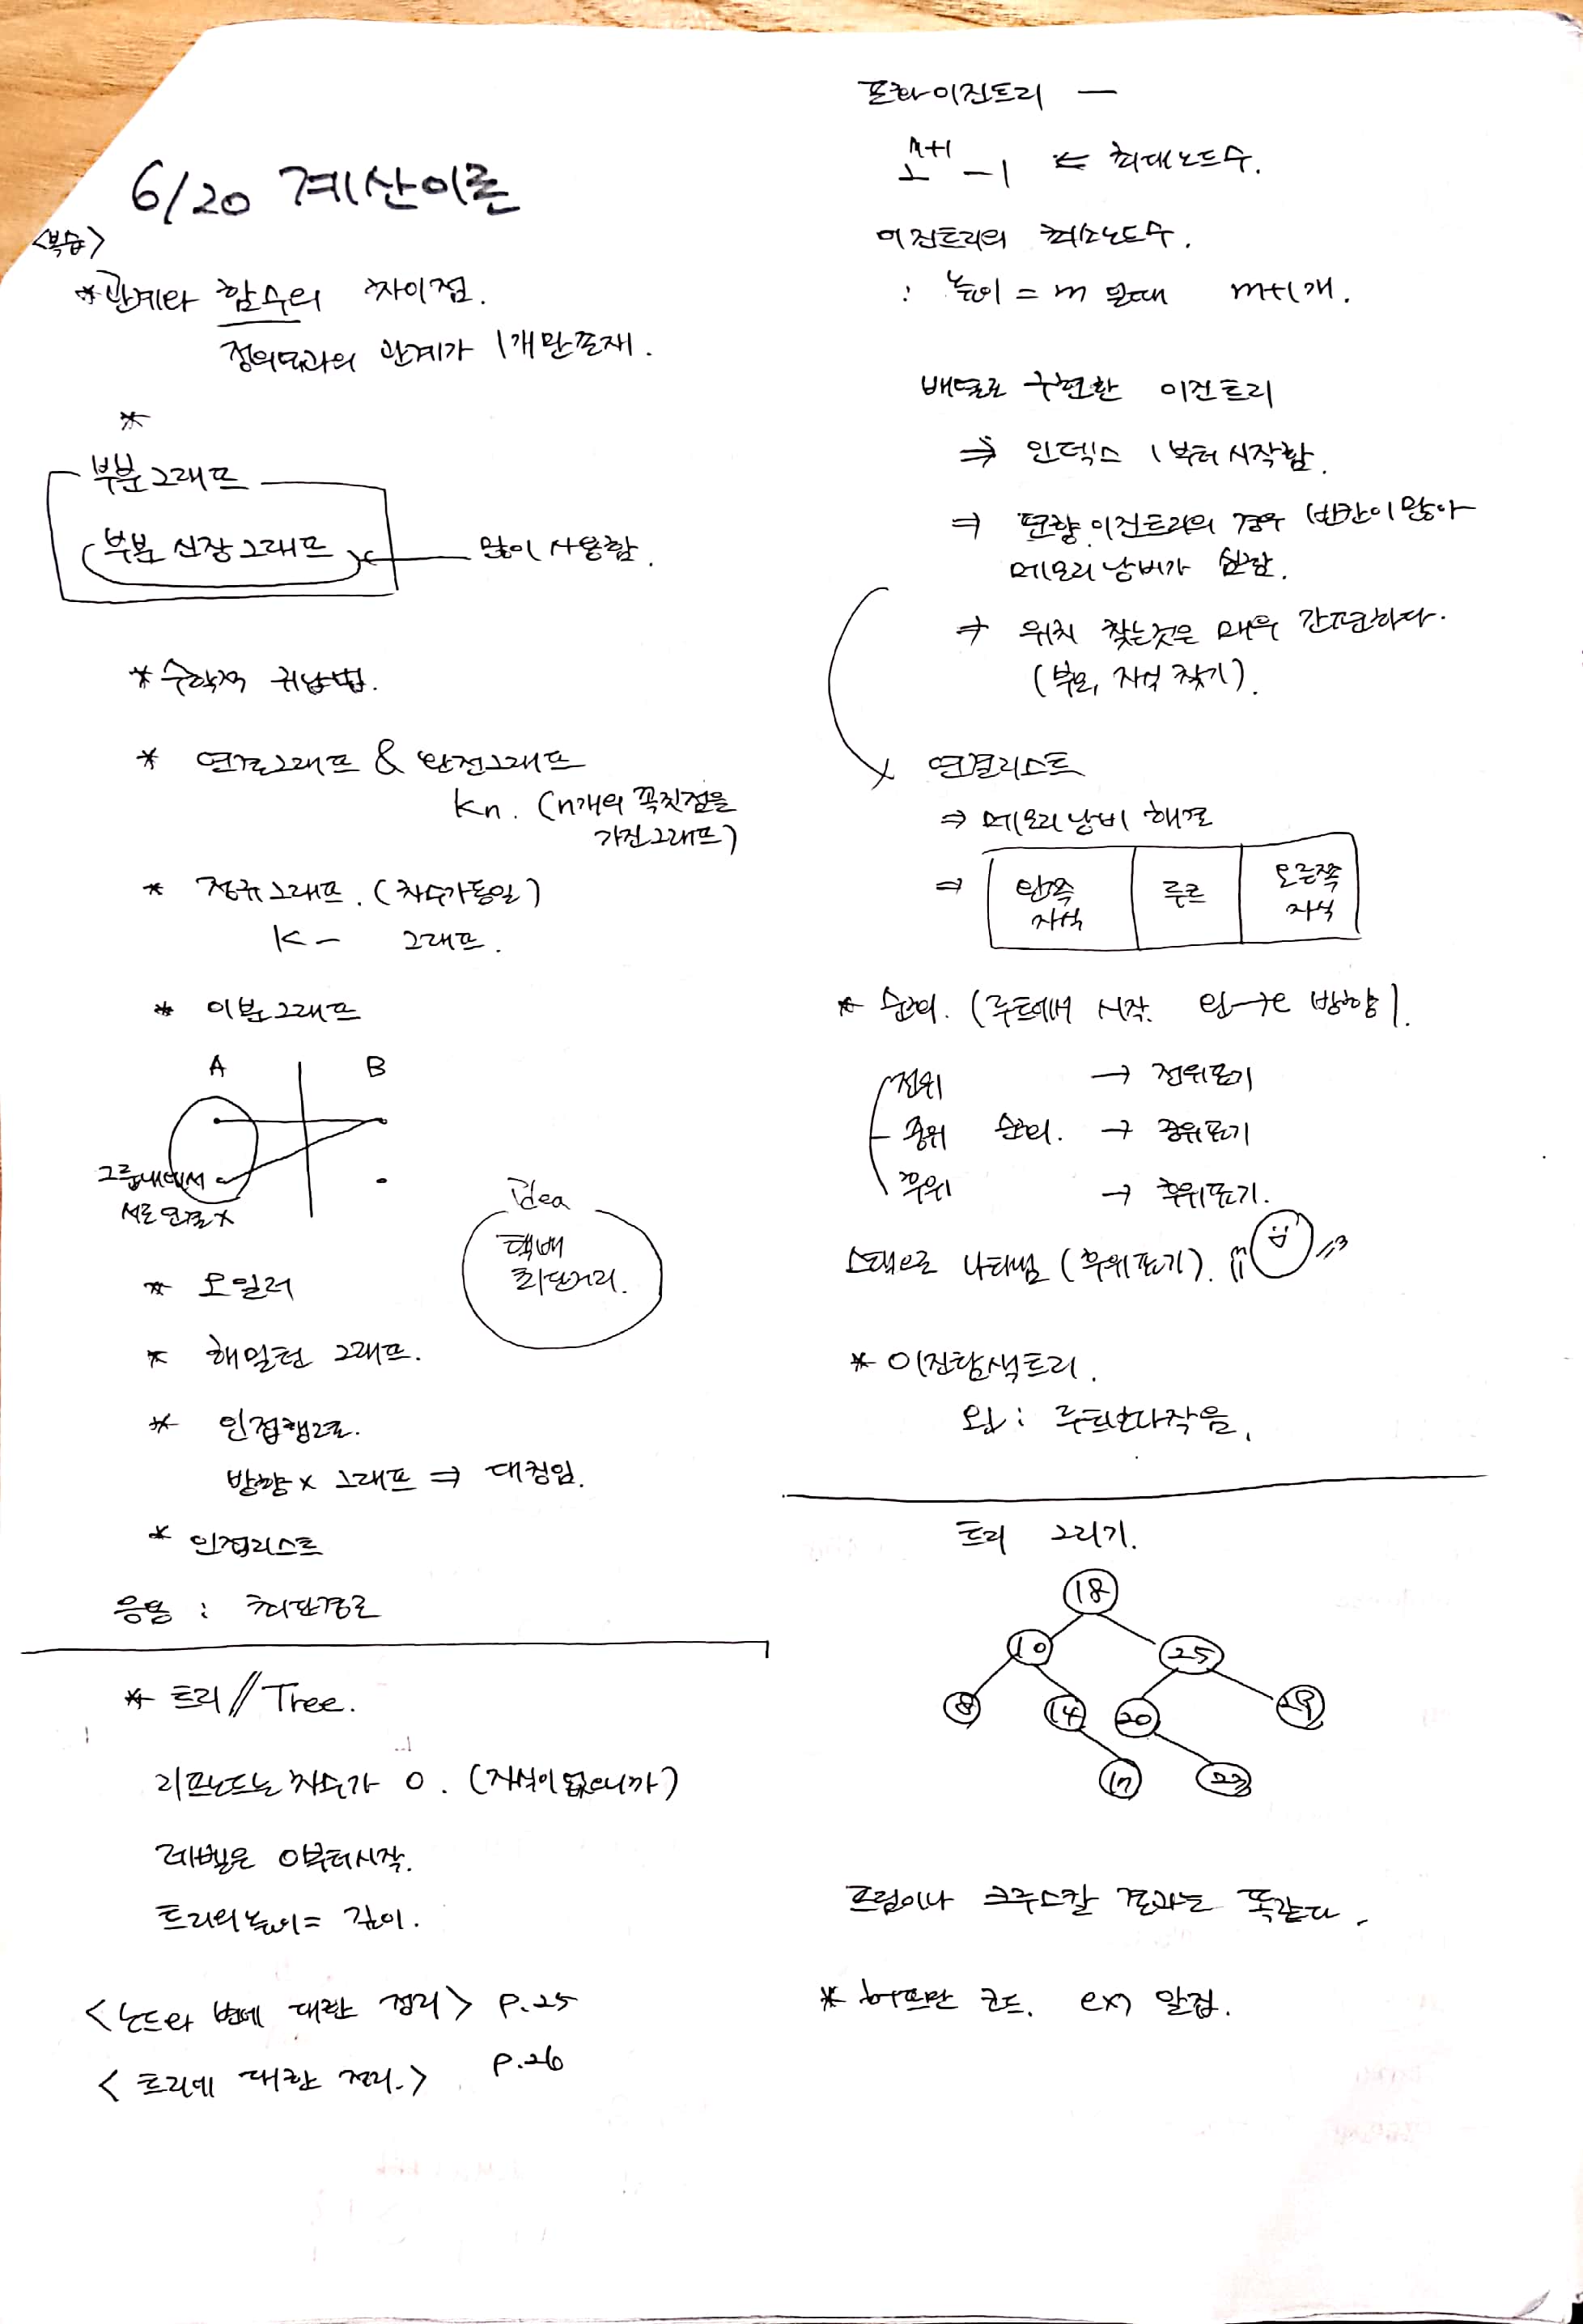 6/20 계산이론
<복습>
* 관계와 함수의 차이점.
정의역과의 관계가 1개만 존재.
*
부분그래프
부분 신장그래프
많이 사용함.
* 수학적 귀납법.
* 연결그래프 & 완전그래프
Kn. (n개의 꼭짓점을
가진그래프)
* 정규그래프. (차수가동일)
K - 그래프.
* 이분그래프
A B
그룹내에서
서로연결x
Idea
택배
최단거리.
* 오일러
* 해밀턴 그래프.
* 인접행렬.
방향x 그래프 ⇒ 대칭임.
* 인접리스트
응용 : 최단경로
* 트리 // Tree.
리프노드는 차수가 0. (자식이 없으니까)
레벨은 0부터시작.
트리의높이= 깊이.
<노드와 변에 대한 정리> P.25
<트리에 대한 정리.> P.26
포화이진트리 —
2^(m+1) -1 ⇐ 최대노드수.
이진트리의 최소노드수.
: 높이 = m 일때 m+1개.
배열로 구현한 이진트리
⇒ 인덱스 1부터 시작함.
⇒ 편향 이진트리의 경우 빈칸이많아
메모리낭비가 심함.
⇒ 위치 찾는것은 매우 간편하다.
(부모, 자식 찾기).
연결리스트
⇒ 메모리낭비 해결
⇒ 왼쪽 자식 루트 오른쪽 자식
* 순회. (루트에서 시작. 왼→오 방향).
전위 → 전위표기
중위 순회. → 중위표기
후위 → 후위표기.
스택으로 나타냄 (후위표기).
* 이진탐색트리.
왼 : 루트보다작음.
트리 그리기.
18
10 25
8 14 20 29
17 23
프림이나 크루스칼 결과는 똑같다.
* 허프만 코드. ex) 알집.